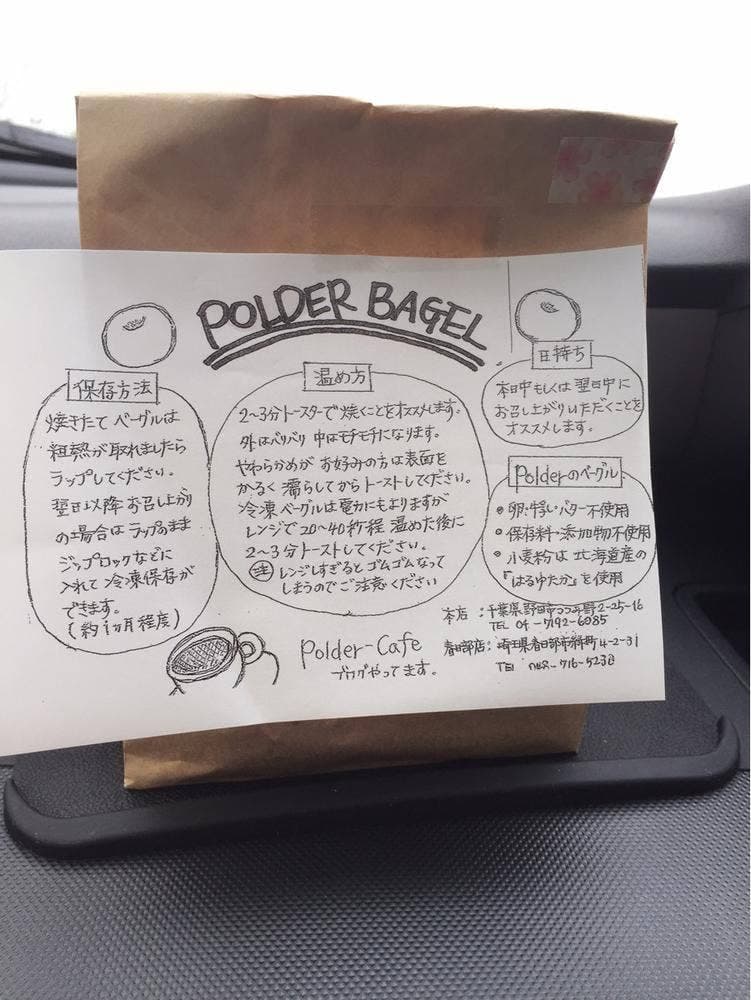 POLDER BAGEL
保存方法
焼きたて ベーグルは
粗熱が取れましたら
ラップしてください。
翌日以降 お召し上がり
の場合は ラップのまま
ジップロックなどに
入れて 冷凍保存が
できます。
(約1ヵ月程度)
温め方
2~3分トースターで焼くことをオススメします。
外はバリバリ 中はモチモチになります。
やわらかめが お好みの方は 表面を
かるく 濡らしてからトーストしてください。
冷凍ベーグルは電力にもよりますが
レンジで20~40秒程 温めた後に
2~3分トーストしてください。
注 レンジしすぎると ゴムゴムなって
しまうのでご注意ください
日持ち
本日中もしくは 翌日中に
お召し上がりいただくことを
オススメします。
Polderのベーグル
・卵・牛乳・バター不使用
・保存料・添加物不使用
・小麦粉は 北海道産の
「はるゆたか」を使用
Polder-Cafe
ブログやってます。
本店 : 千葉県野田市つつみ野2-25-16
TEL 04-7192-6085
春日部店: 埼玉県春日部市 4-2-31
TEL 048-716-5238